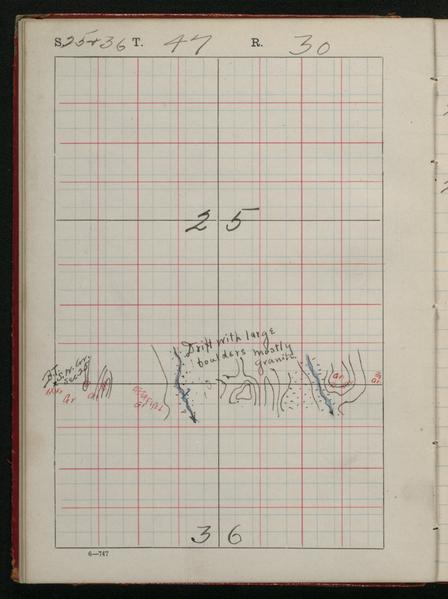 S. 25+36 T. 47 R. 30
25
Drift with large
boulders mostly
granite.
S.W. Cor.
Sec 25
Gr
Gr
Gr
Gr
36
6—747